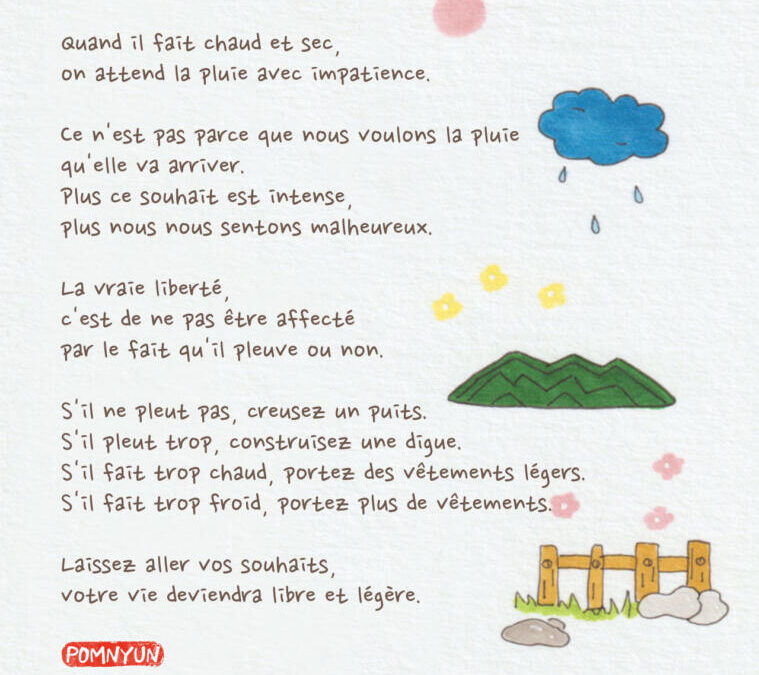 Quand il fait chaud et sec,
on attend la pluie avec impatience.
Ce n'est pas parce que nous voulons la pluie
qu'elle va arriver.
Plus ce souhait est intense,
plus nous nous sentons malheureux.
La vraie liberté,
c'est de ne pas être affecté
par le fait qu'il pleuve ou non.
S'il ne pleut pas, creusez un puits.
S'il pleut trop, construisez une digue.
S'il fait trop chaud, portez des vêtements légers.
S'il fait trop froid, portez plus de vêtements.
Laissez aller vos souhaits,
votre vie deviendra libre et légère.
POMNYUN